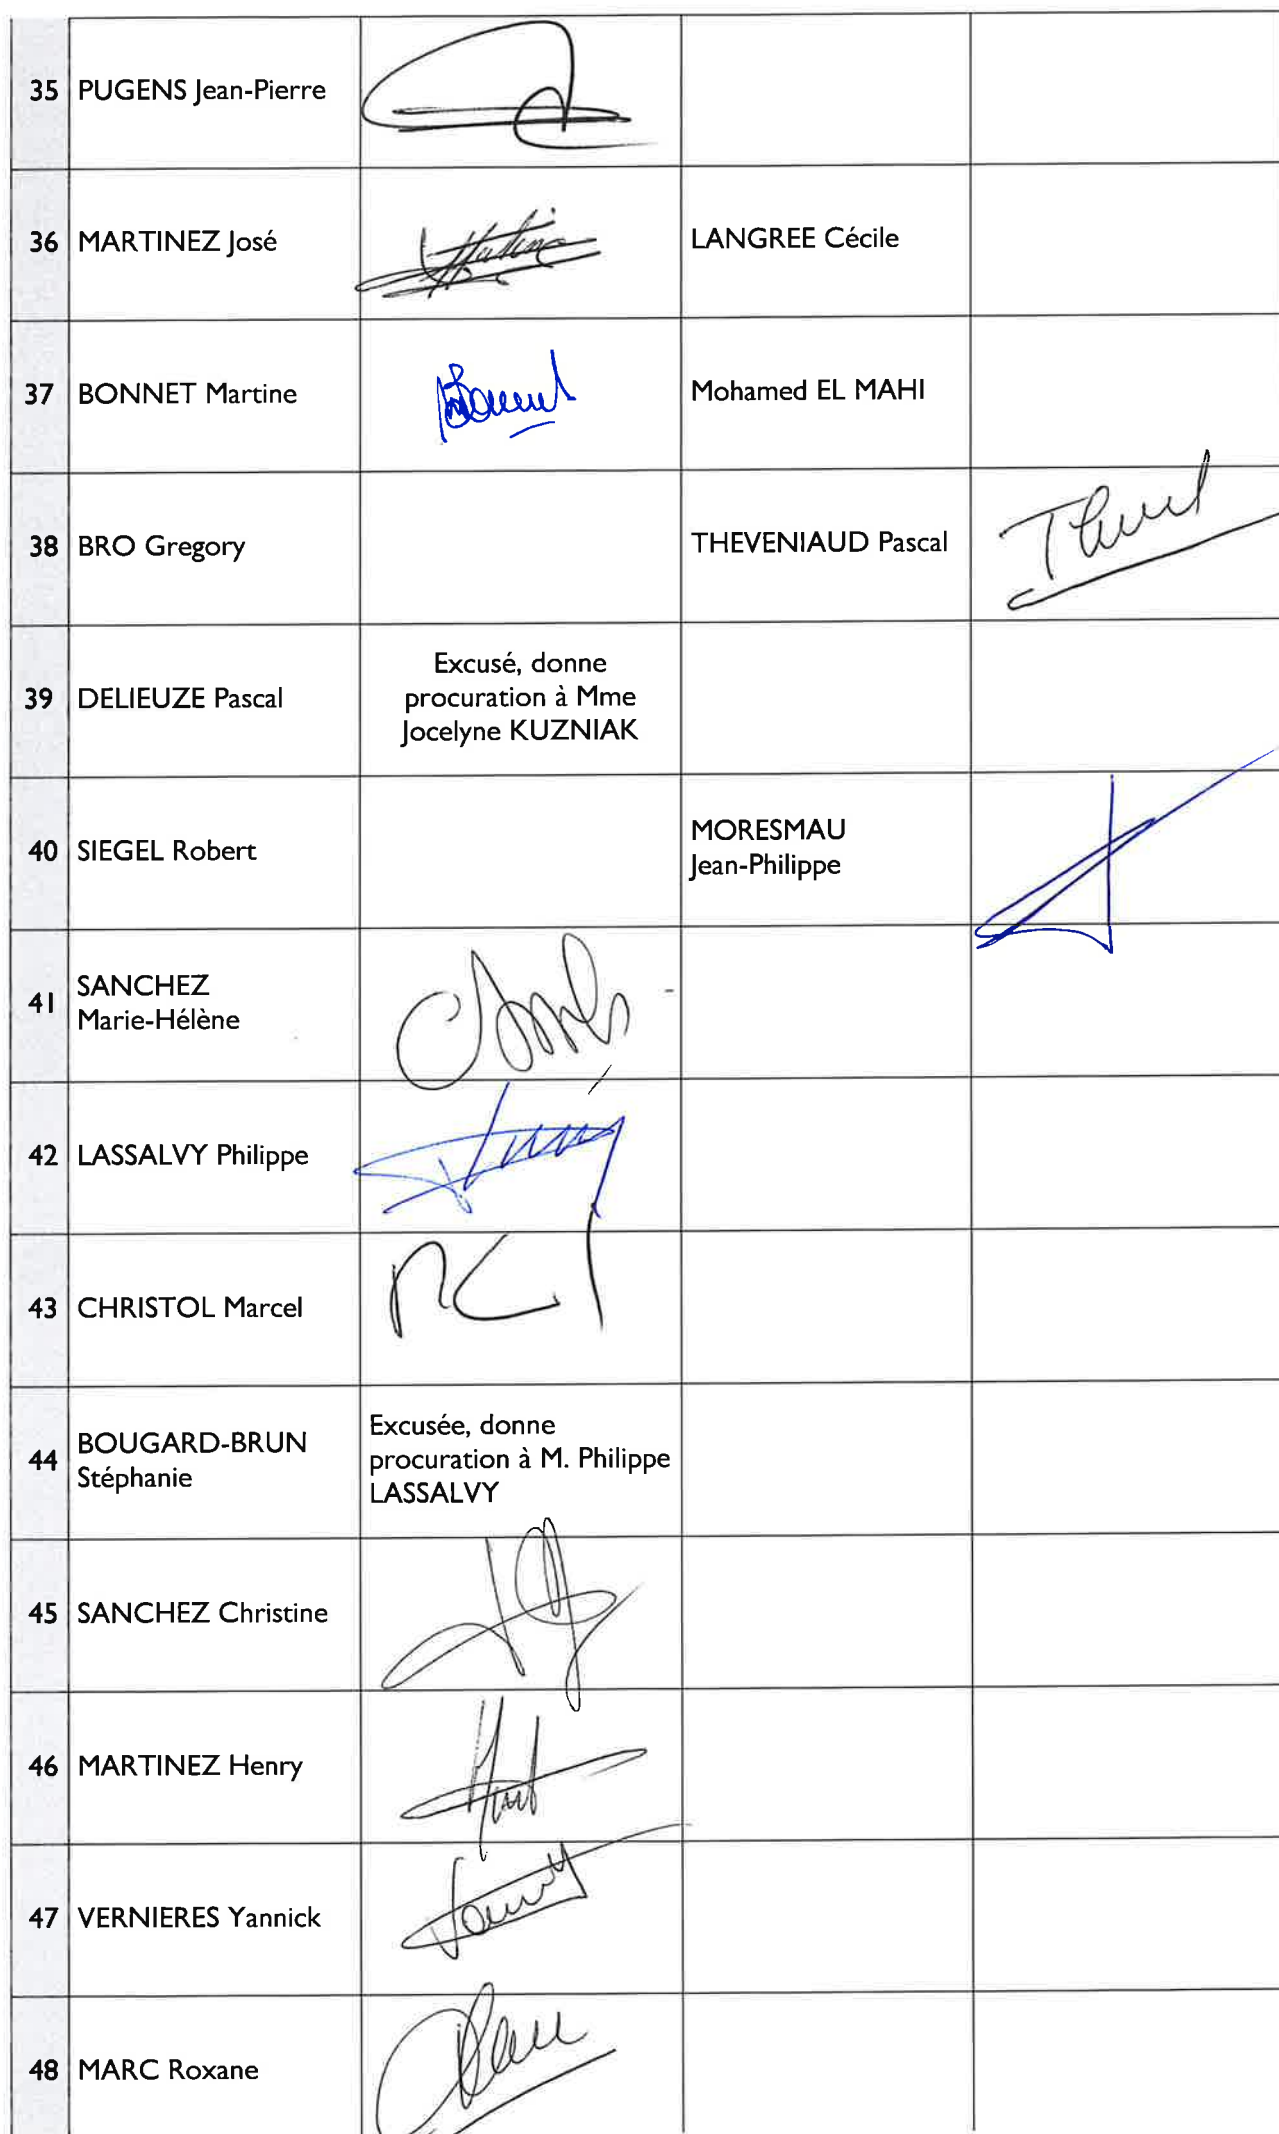 35 PUGENS Jean-Pierre
36 MARTINEZ José LANGREE Cécile
37 BONNET Martine Mohamed EL MAHI
38 BRO Gregory THEVENIAUD Pascal
Excusé, donne
39 DELIEUZE Pascal procuration à Mme
Jocelyne KUZNIAK
40 SIEGEL Robert MORESMAU
Jean-Philippe
41 SANCHEZ
Marie-Hélène
42 LASSALVY Philippe
43 CHRISTOL Marcel
44 BOUGARD-BRUN
Stéphanie
Excusée, donne
procuration à M. Philippe
LASSALVY
45 SANCHEZ Christine
46 MARTINEZ Henry
47 VERNIERES Yannick
48 MARC Roxane